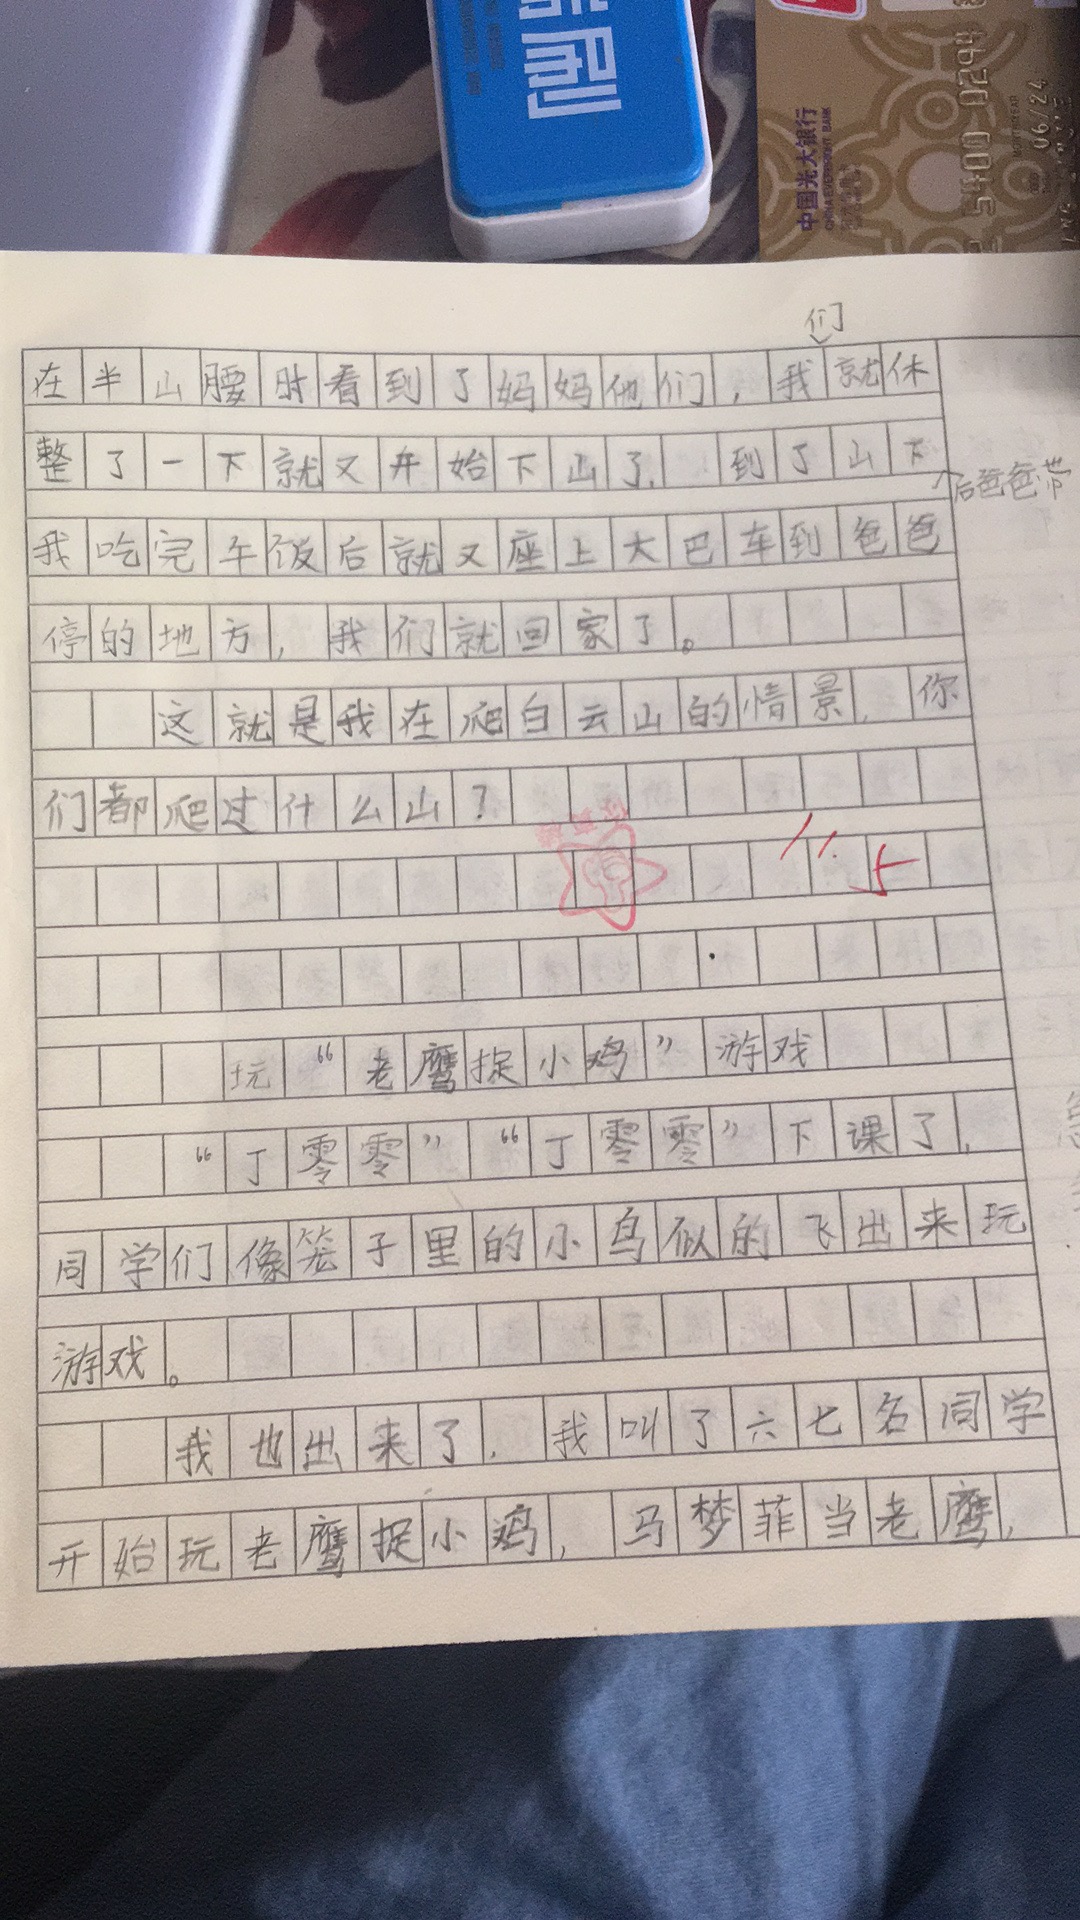 刷
中国光大银行
CHINA EVERBRIGHT BANK
5400 0294
06/24
们
在半山腰时看到了妈妈他们，我就休
整了一下就又开始下山了．到了山下
后爸爸带
我吃完午饭后就又座上大巴车到爸爸
停的地方，我们就回家了。
这就是我在爬白云山的情景．你
们都爬过什么山？
11.5
玩“老鹰捉小鸡”游戏
“丁零零”“丁零零”下课了，
同学们像笼子里的小鸟似的飞出来玩
游戏。
我也出来了．我叫了六七名同学
开始玩老鹰捉小鸡，马梦菲当老鹰，